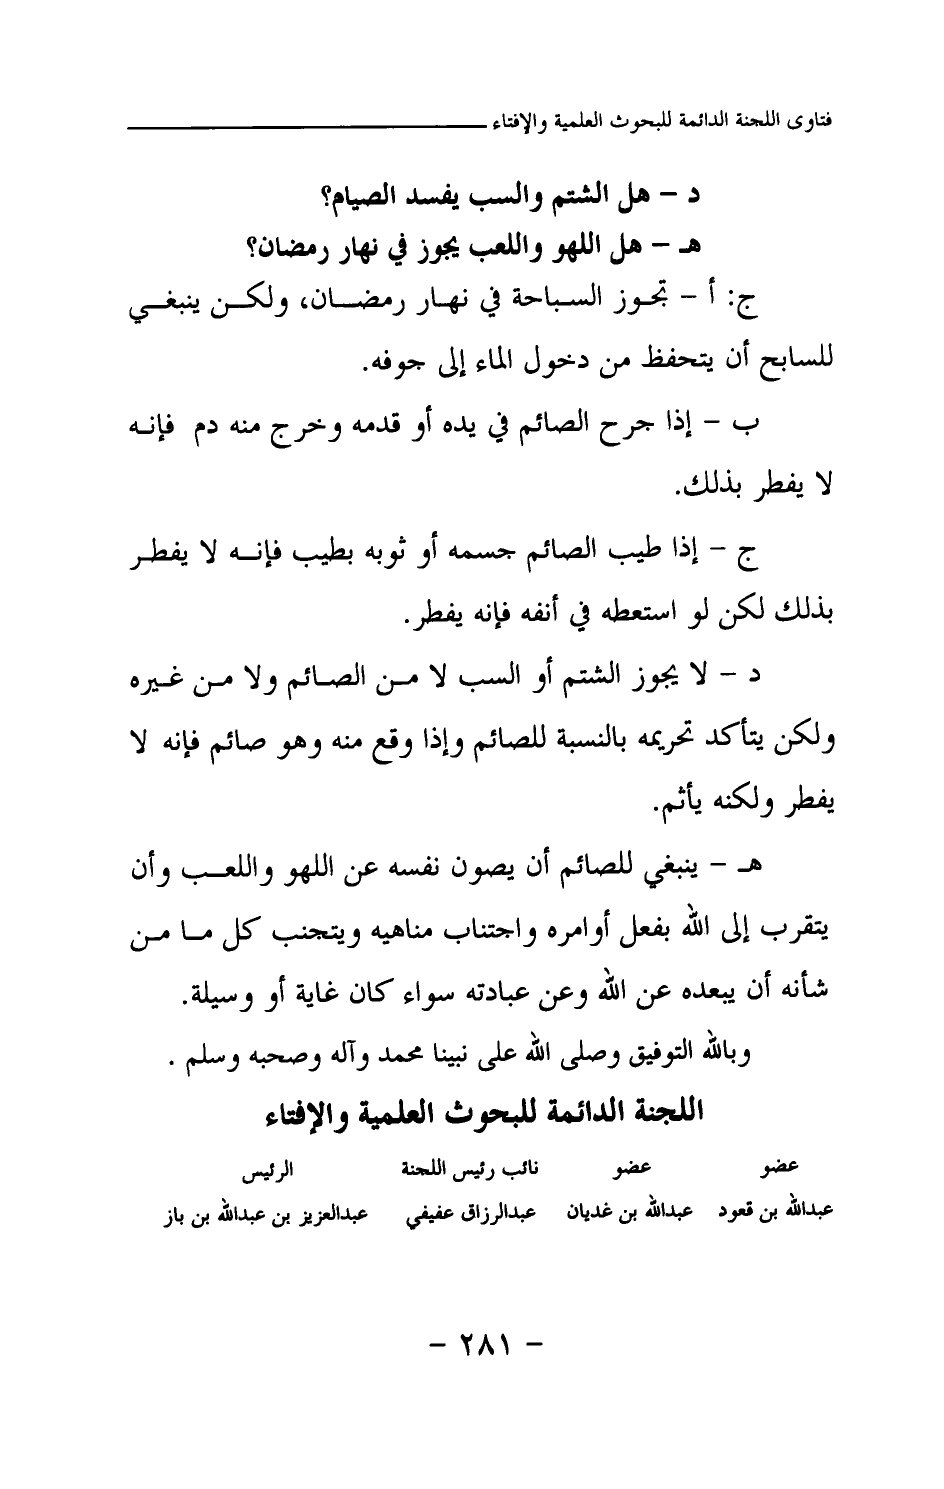 فتاوى اللجنة الدائمة للبحوث العلمية والإفتاء
د – هل الشتم والسب يفسد الصيام؟
هـ – هل اللهو واللعب يجوز في نهار رمضان؟
ج: أ – تجوز السباحة في نهار رمضان، ولكن ينبغي
للسابح أن يتحفظ من دخول الماء إلى جوفه.
ب – إذا جرح الصائم في يده أو قدمه وخرج منه دم فإنه
لا يفطر بذلك.
ج – إذا طيب الصائم جسمه أو ثوبه بطيب فإنه لا يفطر
بذلك لكن لو استعطه في أنفه فإنه يفطر.
د – لا يجوز الشتم أو السب لا من الصائم ولا من غيره
ولكن يتأكد تحريمه بالنسبة للصائم وإذا وقع منه وهو صائم فإنه لا
يفطر ولكنه يأثم.
هـ – ينبغي للصائم أن يصون نفسه عن اللهو واللعب وأن
يتقرب إلى الله بفعل أوامره واجتناب مناهيه ويتجنب كل ما من
شأنه أن يبعده عن الله وعن عبادته سواء كان غاية أو وسيلة.
وبالله التوفيق وصلى الله على نبينا محمد وآله وصحبه وسلم .
اللجنة الدائمة للبحوث العلمية والإفتاء
عضو عضو نائب رئيس اللجنة الرئيس
عبدالله بن قعود عبدالله بن غديان عبدالرزاق عفيفي عبدالعزيز بن عبدالله بن باز
– ٢٨١ –